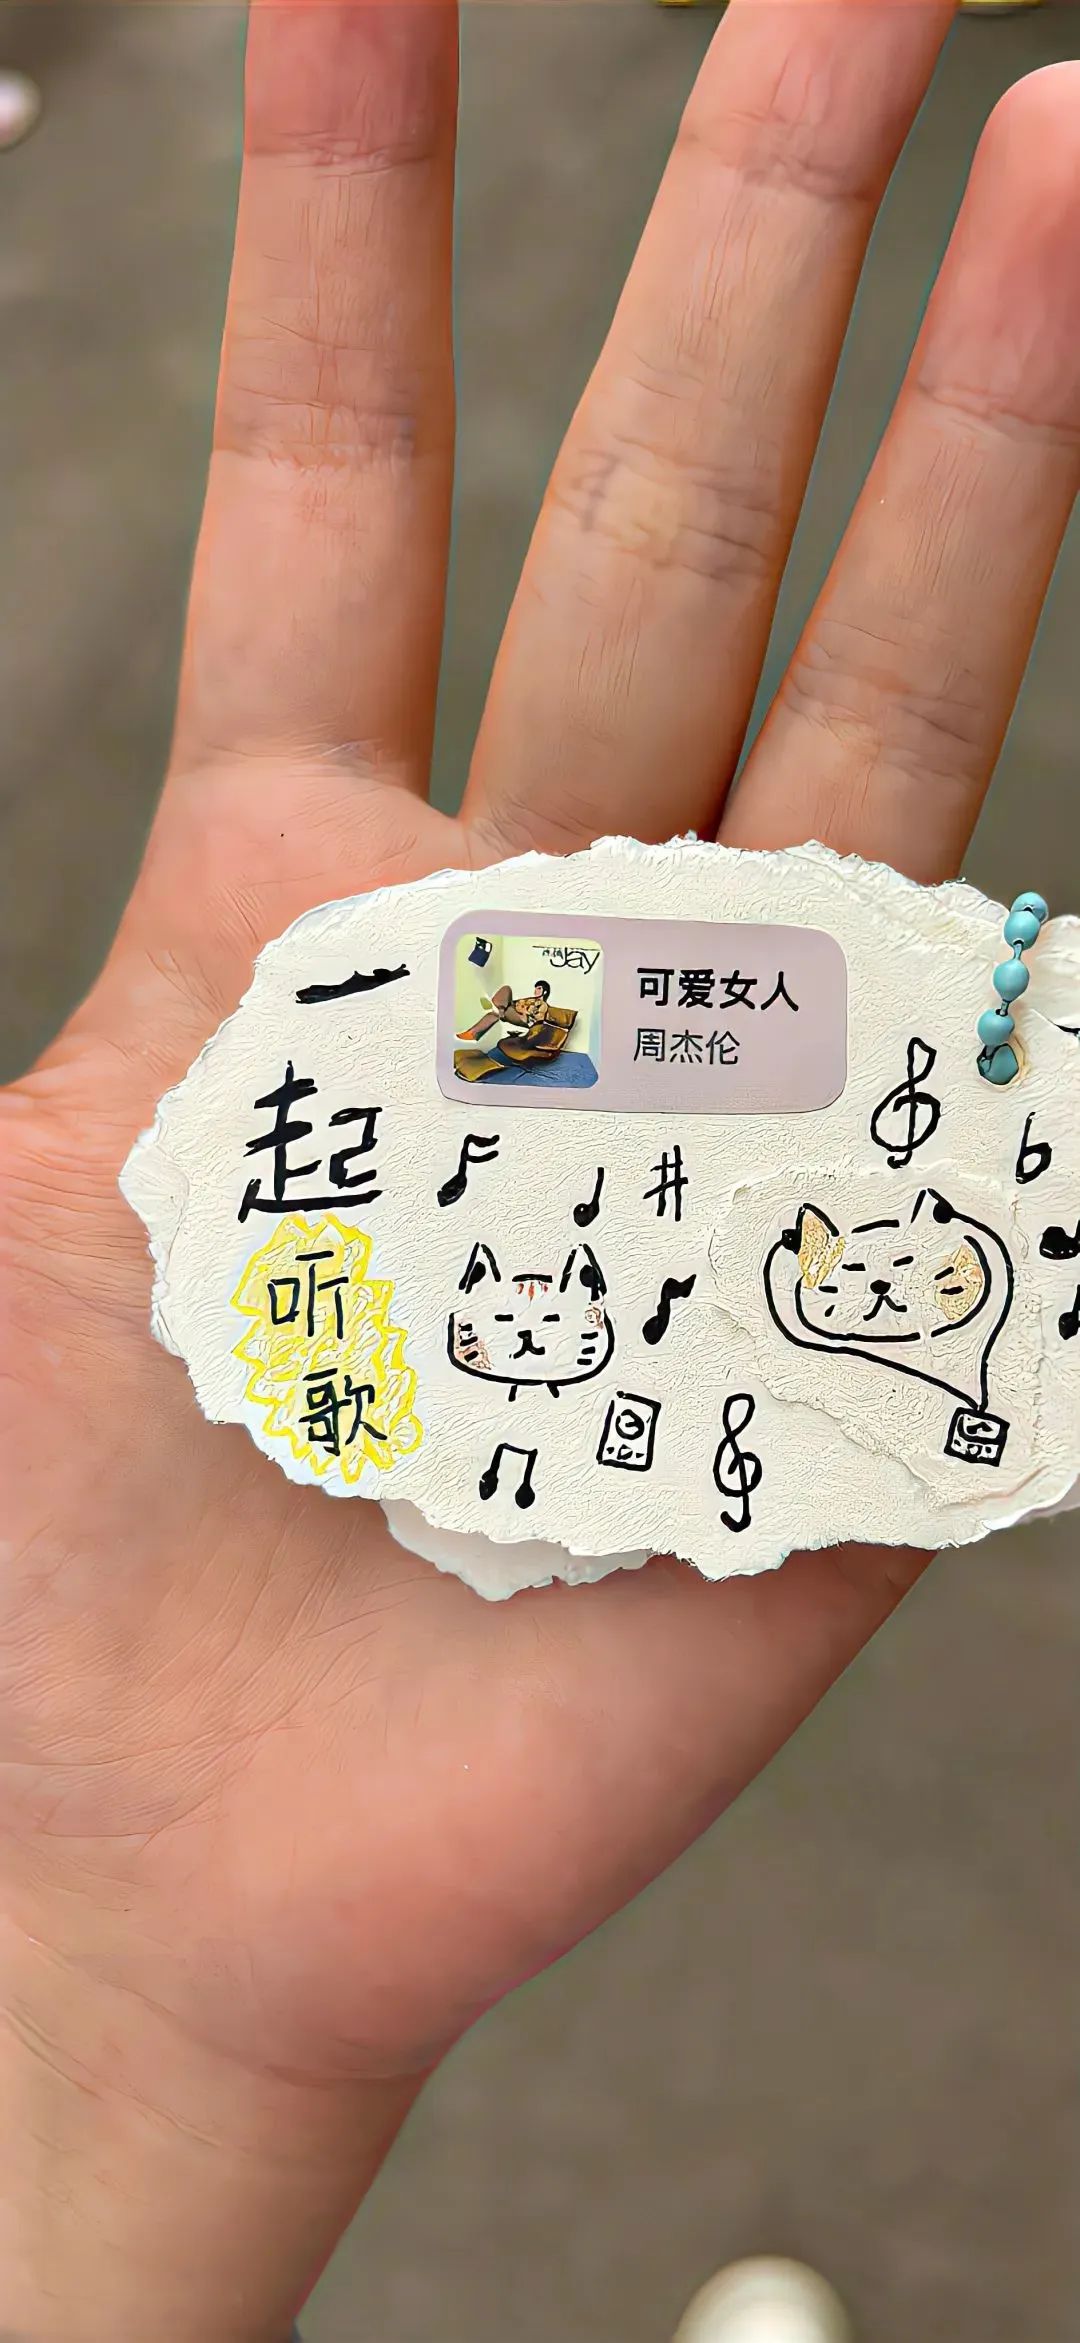 一
起
听
歌
Jay
可爱女人
周杰伦